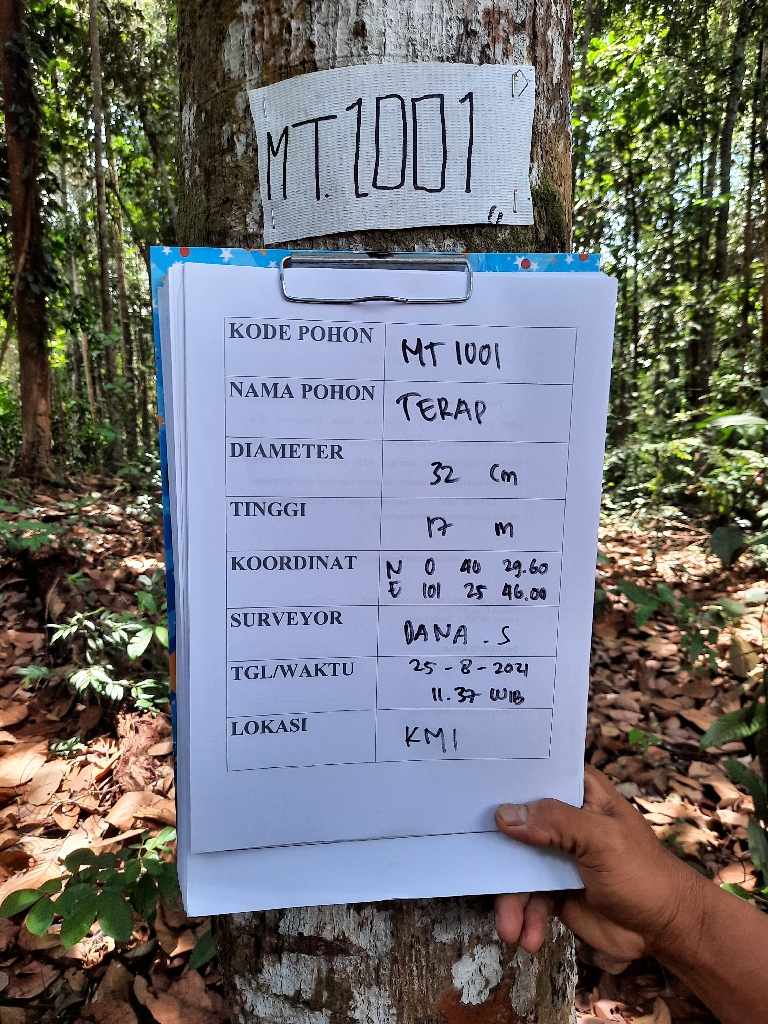 MT.1001
KODE POHON MT 1001
NAMA POHON TERAP
DIAMETER 32 Cm
TINGGI 17 m
KOORDINAT N 0 40 29.60
E 101 25 46.00
SURVEYOR DANA . S
TGL/WAKTU 25 - 8 - 2021
11.37 WIB
LOKASI KMI